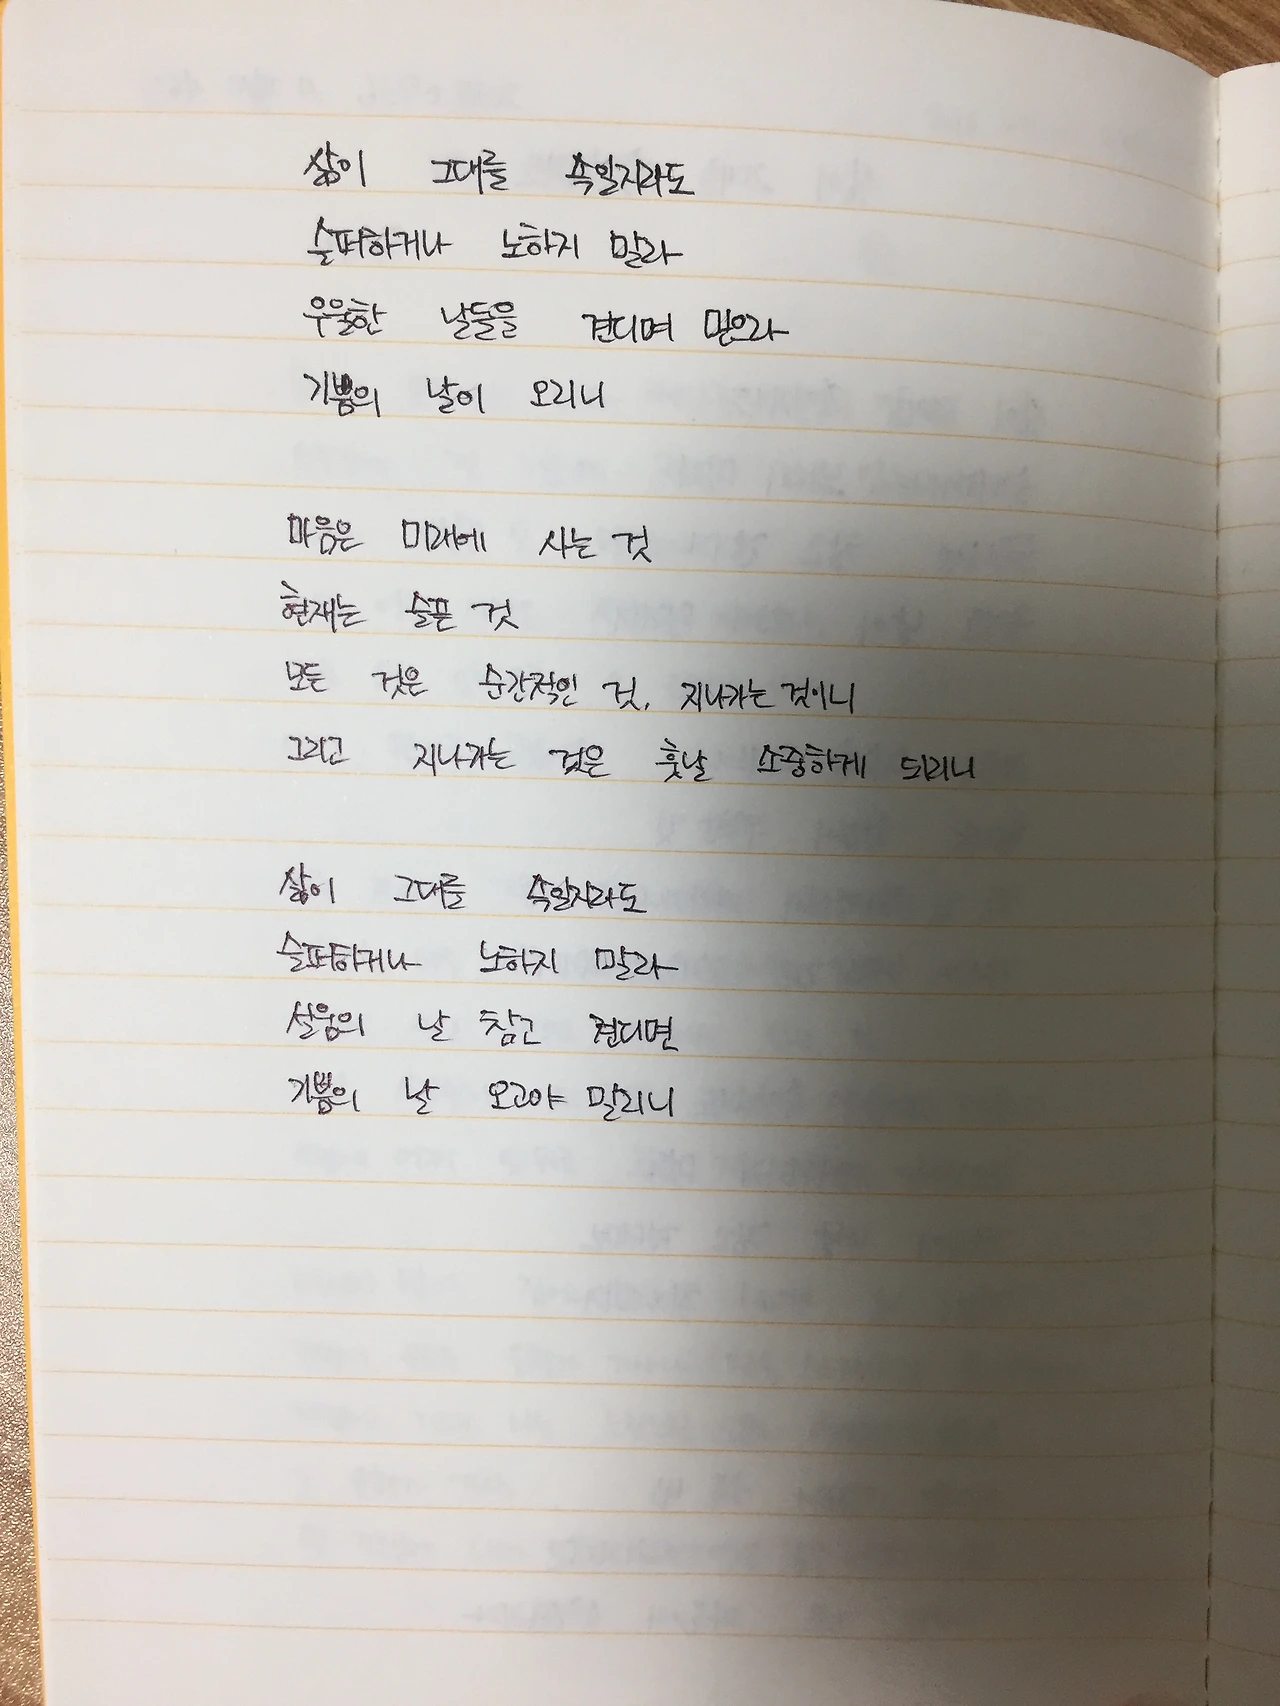 삶이 그대를 속일지라도
슬퍼하거나 노하지 말라
우울한 날들을 견디며 믿으라
기쁨의 날이 오리니
마음은 미래에 사는 것
현재는 슬픈 것
모든 것은 순간적인 것, 지나가는 것이니
그리고 지나가는 것은 훗날 소중하게 되리니
삶이 그대를 속일지라도
슬퍼하거나 노하지 말라
설움의 날 참고 견디면
기쁨의 날 오고야 말리니